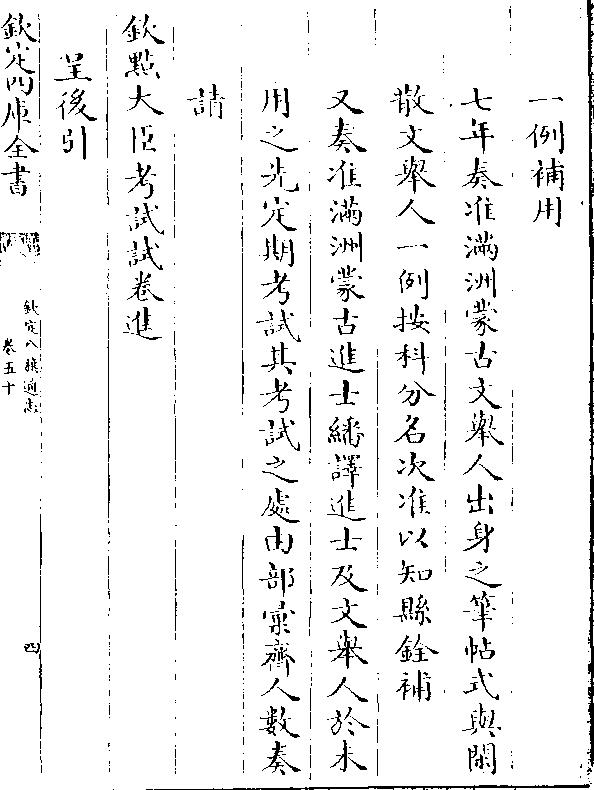 一例補用
七年奏准滿洲蒙古文舉人出身之筆帖式與閑
散文舉人一例按科分名次准以知縣銓補
又奏准滿洲蒙古進士繙譯進士及文舉人於未
用之先定期考試其考試之處由部彙齊人數奏
請
欽點大臣考試試卷進
呈後引
欽定四庫全書
欽定八旗通志
卷五十
四